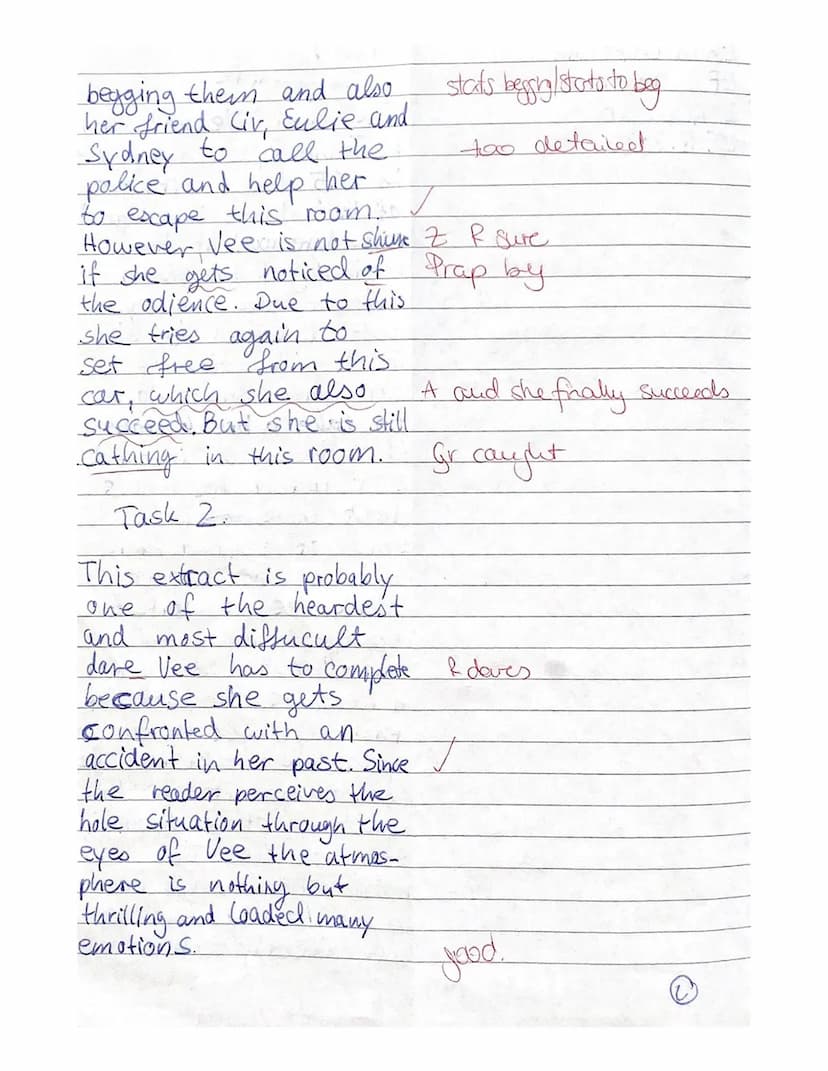 begging them and also stats begging/stats to beg
her friend Liv, Eulie and
Sydney to call the too detailed
police and help her
to escape this room. ✓
However, Vee is not shure Z R sure
if she gets noticed of Präp by
the odience. Due to this
she tries again to
set free from this
car, which she also A and she finally succeeds
succeed. But she is still
cathing in this room. Gr caught
Task 2.
This extract is probably
one of the heardest
and most diffucult
dare Vee has to complete R dares
because she gets
confronted with an
accident in her past. Since ✓
the reader perceives the
hole situation through the
eyes of Vee the atmos-
phere is nothing but
thrilling and loaded many
emotions. good.